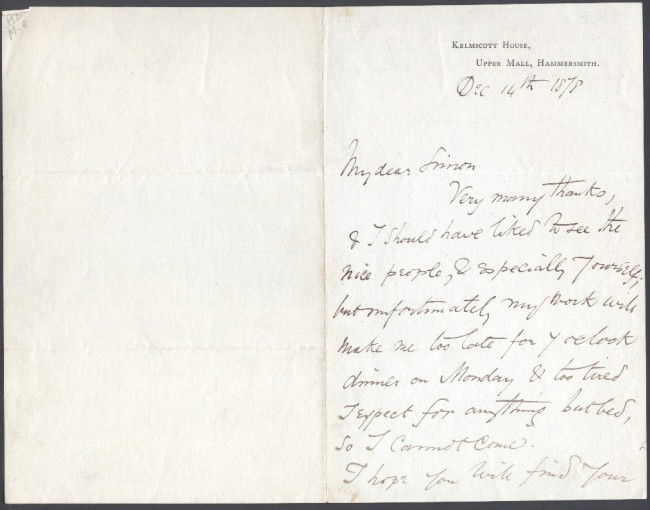 Kelmscott House,
Upper Mall, Hammersmith.
Dec 14th 1878
My dear Simon
Very many thanks,
& I should have liked to see the
nice people, & especially yourself;
but unfortunately my work will
make me too late for 7 oclock
dinner on Monday & too tired
I expect for anything but bed,
so I cannot come.
I hope you will find your